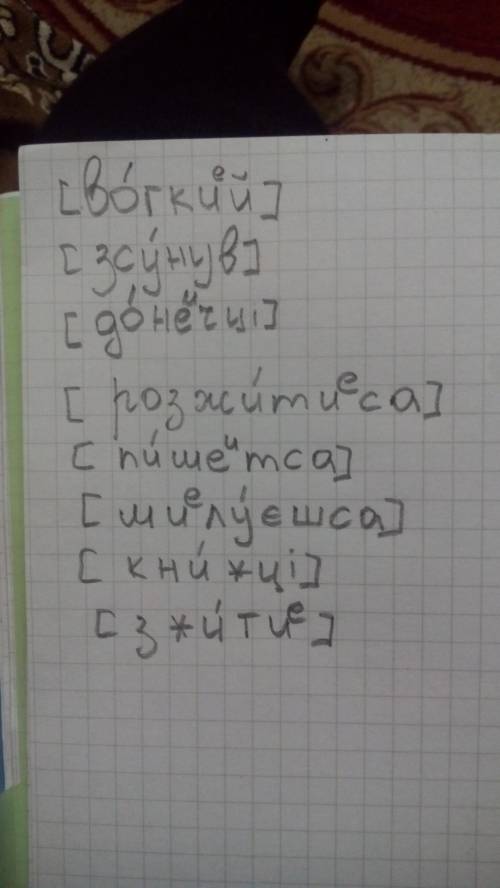 [во́гкиᵉй]
[зсу́нув]
[до́неᶸчці]
[розжи́тиᵉса]
[пи́шеᶸтса]
[миᵉлу́єшса]
[кни́жці]
[зжи́тиᵉ]